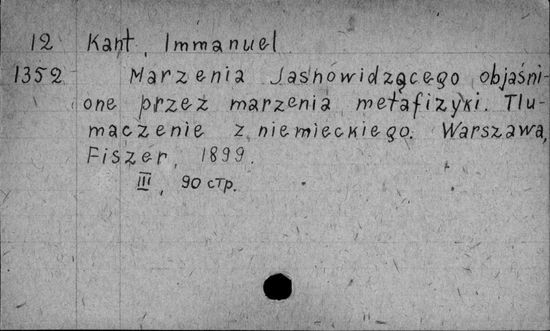 12 Kant, Immanuel
1352 Marzenia Jasnowidzącego objaśni-
one przez marzenia metafizyki. Tlu-
maczenie z niemieckiego. Warszawa,
Fiszer, 1899.
III, 90 стр.